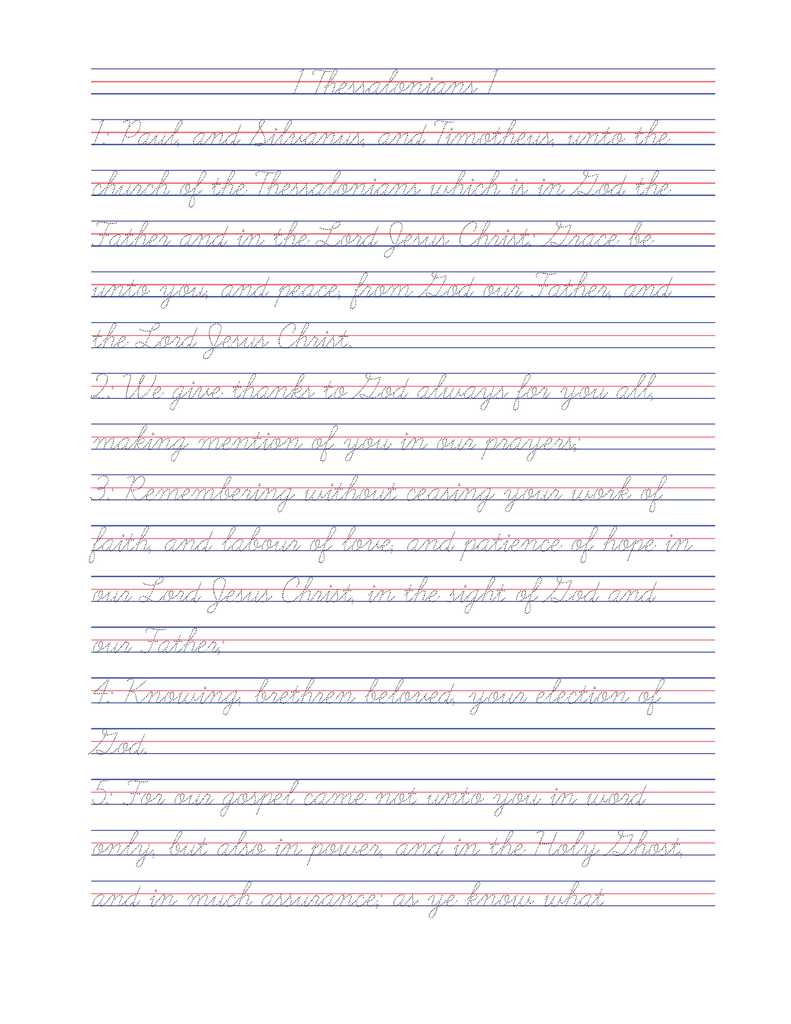 1 Thessalonians 1
1: Paul, and Silvanus, and Timotheus, unto the
church of the Thessalonians which is in God the
Father and in the Lord Jesus Christ: Grace be
unto you, and peace, from God our Father, and
the Lord Jesus Christ.
2: We give thanks to God always for you all,
making mention of you in our prayers;
3: Remembering without ceasing your work of
faith, and labour of love, and patience of hope in
our Lord Jesus Christ, in the sight of God and
our Father;
4: Knowing, brethren beloved, your election of
God.
5: For our gospel came not unto you in word
only, but also in power, and in the Holy Ghost,
and in much assurance; as ye know what